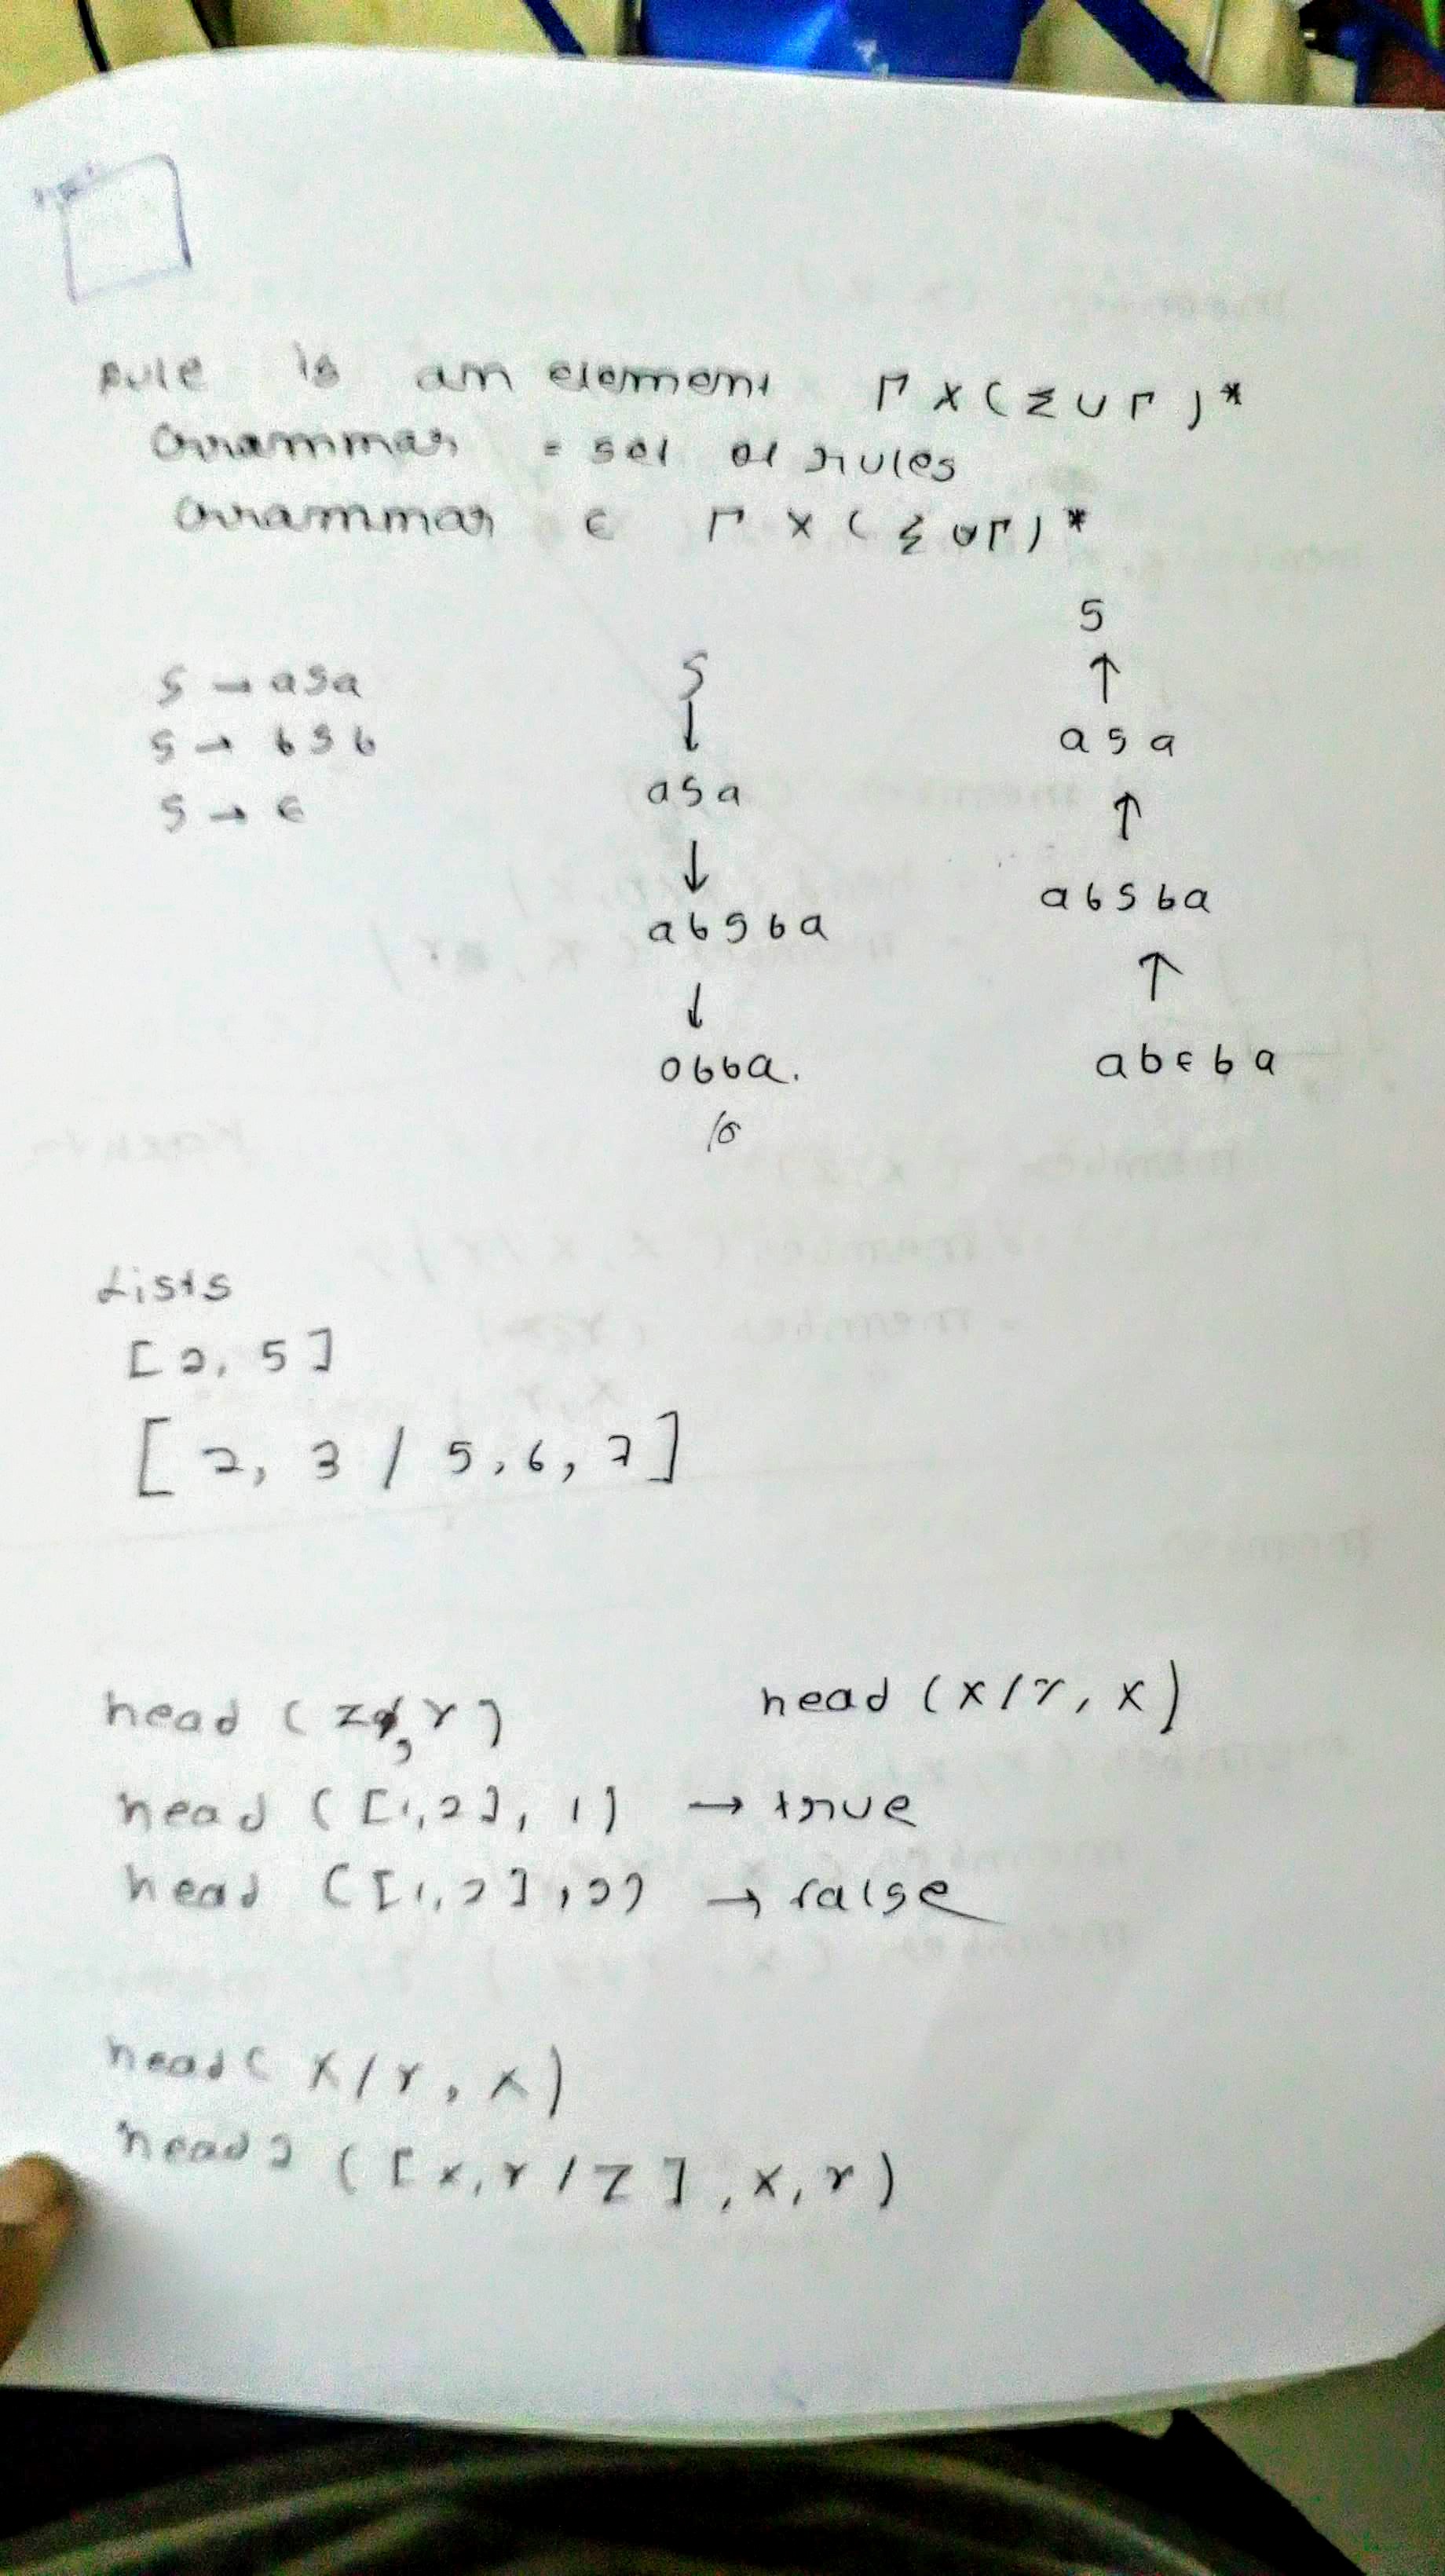 Rule is an element Γ × (Σ ∪ Γ)*
Grammar = set of rules
Grammar ∈ Γ × (Σ ∪ Γ)*
S → aSa
S → bSb
S → ϵ
S
↓
aSa
↓
abSba
↓
abba.
S
↑
aSa
↑
abSba
↑
abϵba
Lists
[2, 5]
[2, 3 / 5, 6, 7]
head (Z, Y) head (X/Y, X)
head ([1,2], 1) → true
head ([1,2], 2) → false
head (X/Y, X)
head2 ([X, Y / Z], X, Y)